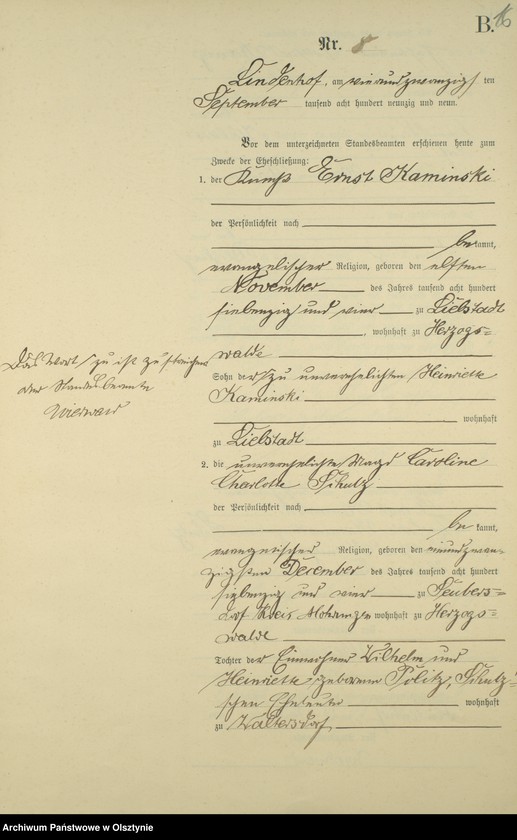 B. 16
Nr. 8
Lindenhof, am vierundzwanzigsten
September tausend acht hundert neunzig und neun.
Vor dem unterzeichneten Standesbeamten erschienen heute zum
Zwecke der Eheschließung:
1. der Knecht Ernst Kaminski
der Persönlichkeit nach
bekannt,
evangelischer Religion, geboren den elften
November des Jahres tausend acht hundert
siebenzig und vier zu Liebstadt
, wohnhaft zu Herzogs=
walde
Das Wort "zu" ist zu streichen
der Standesbeamte
Sohn der zu unverehelichten Henriette
Kaminski
wohnhaft
zu Liebstadt
2. die unverehelichte Magd Caroline
Charlotte Schulz
der Persönlichkeit nach
bekannt,
evangelischer Religion, geboren den einundzwan=
zigsten December des Jahres tausend acht hundert
siebenzig und vier zu Seubers=
dorf Kreis Mohrungen wohnhaft zu Herzogs=
walde
Tochter der Einwohner Wilhelm und
Henriette geborene Politz, Schulz=
schen Eheleute wohnhaft
zu Waltersdorf
Archiwum Państwowe w Olsztynie